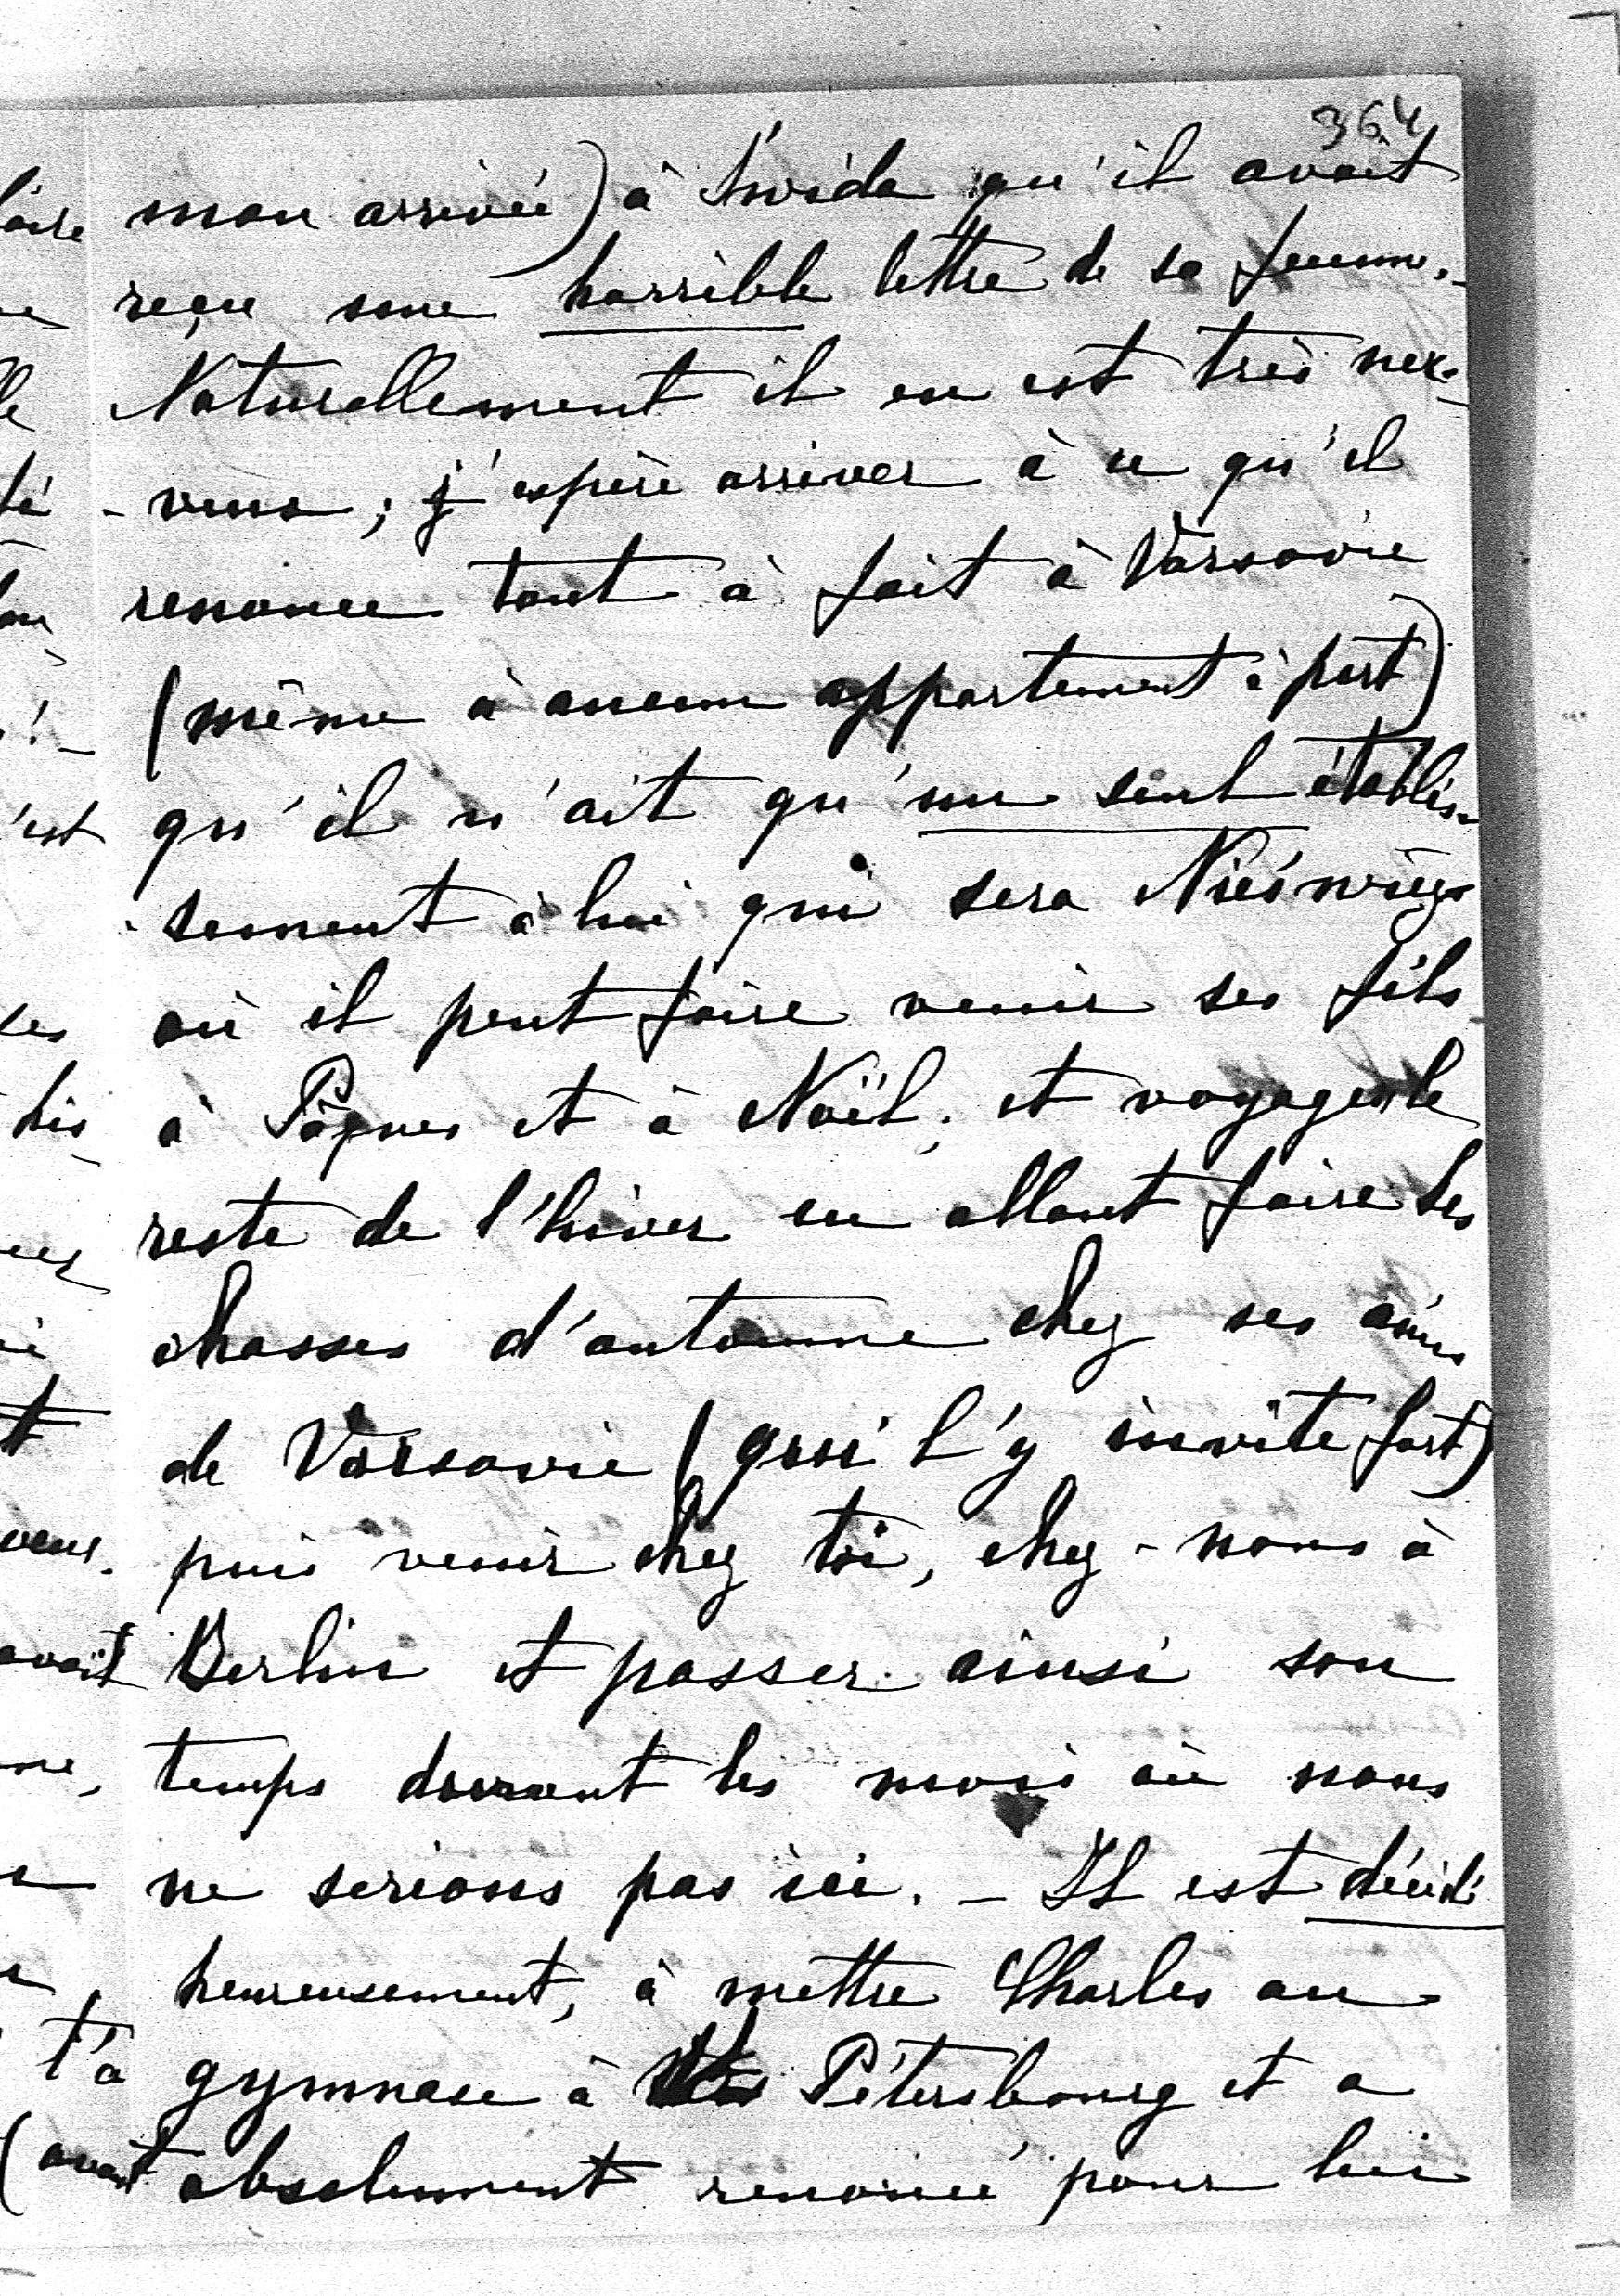 364
mon arrivée) à Swida qu'il avait
reçu une horrible lettre de sa femme.
Naturellement il en est très ner-
- veux; j'espère arriver à ce qu'il
renonce tout à fait à Varsovie
(même à aucun appartement à part)
qu'il n'ait qu'un seul établis-
sement à lui qui sera Nieśwież
où il peut faire venir ses fils
à Pâques et à Noël, et voyager le
reste de l'hiver en allant faire les
chasses d'automne chez ses amis
de Varsovie (qui l'y invite fort)
puis venir chez toi, chez-nous à
Berlin et passer ainsi son
temps durant les mois où nous
ne serions pas ici. - Il est décidé
heureusement, à mettre Charles au
gymnase à Pétersbourg et a
absolument renoncé pour lui